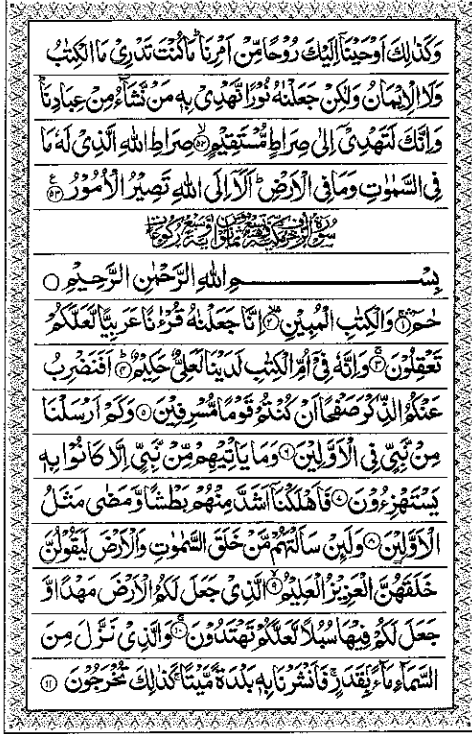 وَكَذٰلِكَ اَوْحَيْنَاۤ اِلَيْكَ رُوْحًا مِّنْ اَمْرِنَا ؕ مَا كُنْتَ تَدْرِىْ مَا الْكِتٰبُ
وَلَا الْاِيْمَانُ وَلٰكِنْ جَعَلْنٰهُ نُوْرًا نَّهْدِىْ بِهٖ مَنْ نَّشَآءُ مِنْ عِبَادِنَا ؕ
وَاِنَّكَ لَتَهْدِىْۤ اِلٰى صِرَاطٍ مُّسْتَقِيْمٍ ۙ‏﴿۵۲﴾ صِرَاطِ اللّٰهِ الَّذِىْ لَهٗ مَا
فِى السَّمٰوٰتِ وَمَا فِى الْاَرْضِ ؕ اَلَاۤ اِلَى اللّٰهِ تَصِيْرُ الْاُمُوْرُ ﴿۵۳﴾
بِسْمِ اللّٰهِ الرَّحْمٰنِ الرَّحِيْمِ
حٰمٓ ۚ‏﴿۱﴾ وَالْكِتٰبِ الْمُبِيْنِ ۙ‏﴿۲﴾ اِنَّا جَعَلْنٰهُ قُرْءٰنًا عَرَبِيًّا لَّعَلَّكُمْ
تَعْقِلُوْنَ ۚ‏﴿۳﴾ وَاِنَّهٗ فِىْۤ اُمِّ الْكِتٰبِ لَدَيْنَا لَعَلِىٌّ حَكِيْمٌ ؕ‏﴿۴﴾ اَفَنَضْرِبُ
عَنْكُمُ الذِّكْرَ صَفْحًا اَنْ كُنْتُمْ قَوْمًا مُّسْرِفِيْنَ ﴿۵﴾ وَكَمْ اَرْسَلْنَا
مِنْ نَّبِىٍّ فِى الْاَوَّلِيْنَ ﴿۶﴾ وَمَا يَاْتِيْهِمْ مِّنْ نَّبِىٍّ اِلَّا كَانُوْا بِهٖ
يَسْتَهْزِءُوْنَ ﴿۷﴾ فَاَهْلَكْنَاۤ اَشَدَّ مِنْهُمْ بَطْشًا وَّمَضٰى مَثَلُ
الْاَوَّلِيْنَ ﴿۸﴾ وَلَئِنْ سَاَلْتَهُمْ مَّنْ خَلَقَ السَّمٰوٰتِ وَالْاَرْضَ لَيَقُوْلُنَّ
خَلَقَهُنَّ الْعَزِيْزُ الْعَلِيْمُ ۙ‏﴿۹﴾ الَّذِىْ جَعَلَ لَكُمُ الْاَرْضَ مَهْدًا وَّ
جَعَلَ لَكُمْ فِيْهَا سُبُلًا لَّعَلَّكُمْ تَهْتَدُوْنَ ۚ‏﴿۱۰﴾ وَالَّذِىْ نَزَّلَ مِنَ
السَّمَآءِ مَآءًۢ بِقَدَرٍ ۚ فَاَنْشَرْنَا بِهٖ بَلْدَةً مَّيْتًا ۚ كَذٰلِكَ تُخْرَجُوْنَ ﴿۱۱﴾